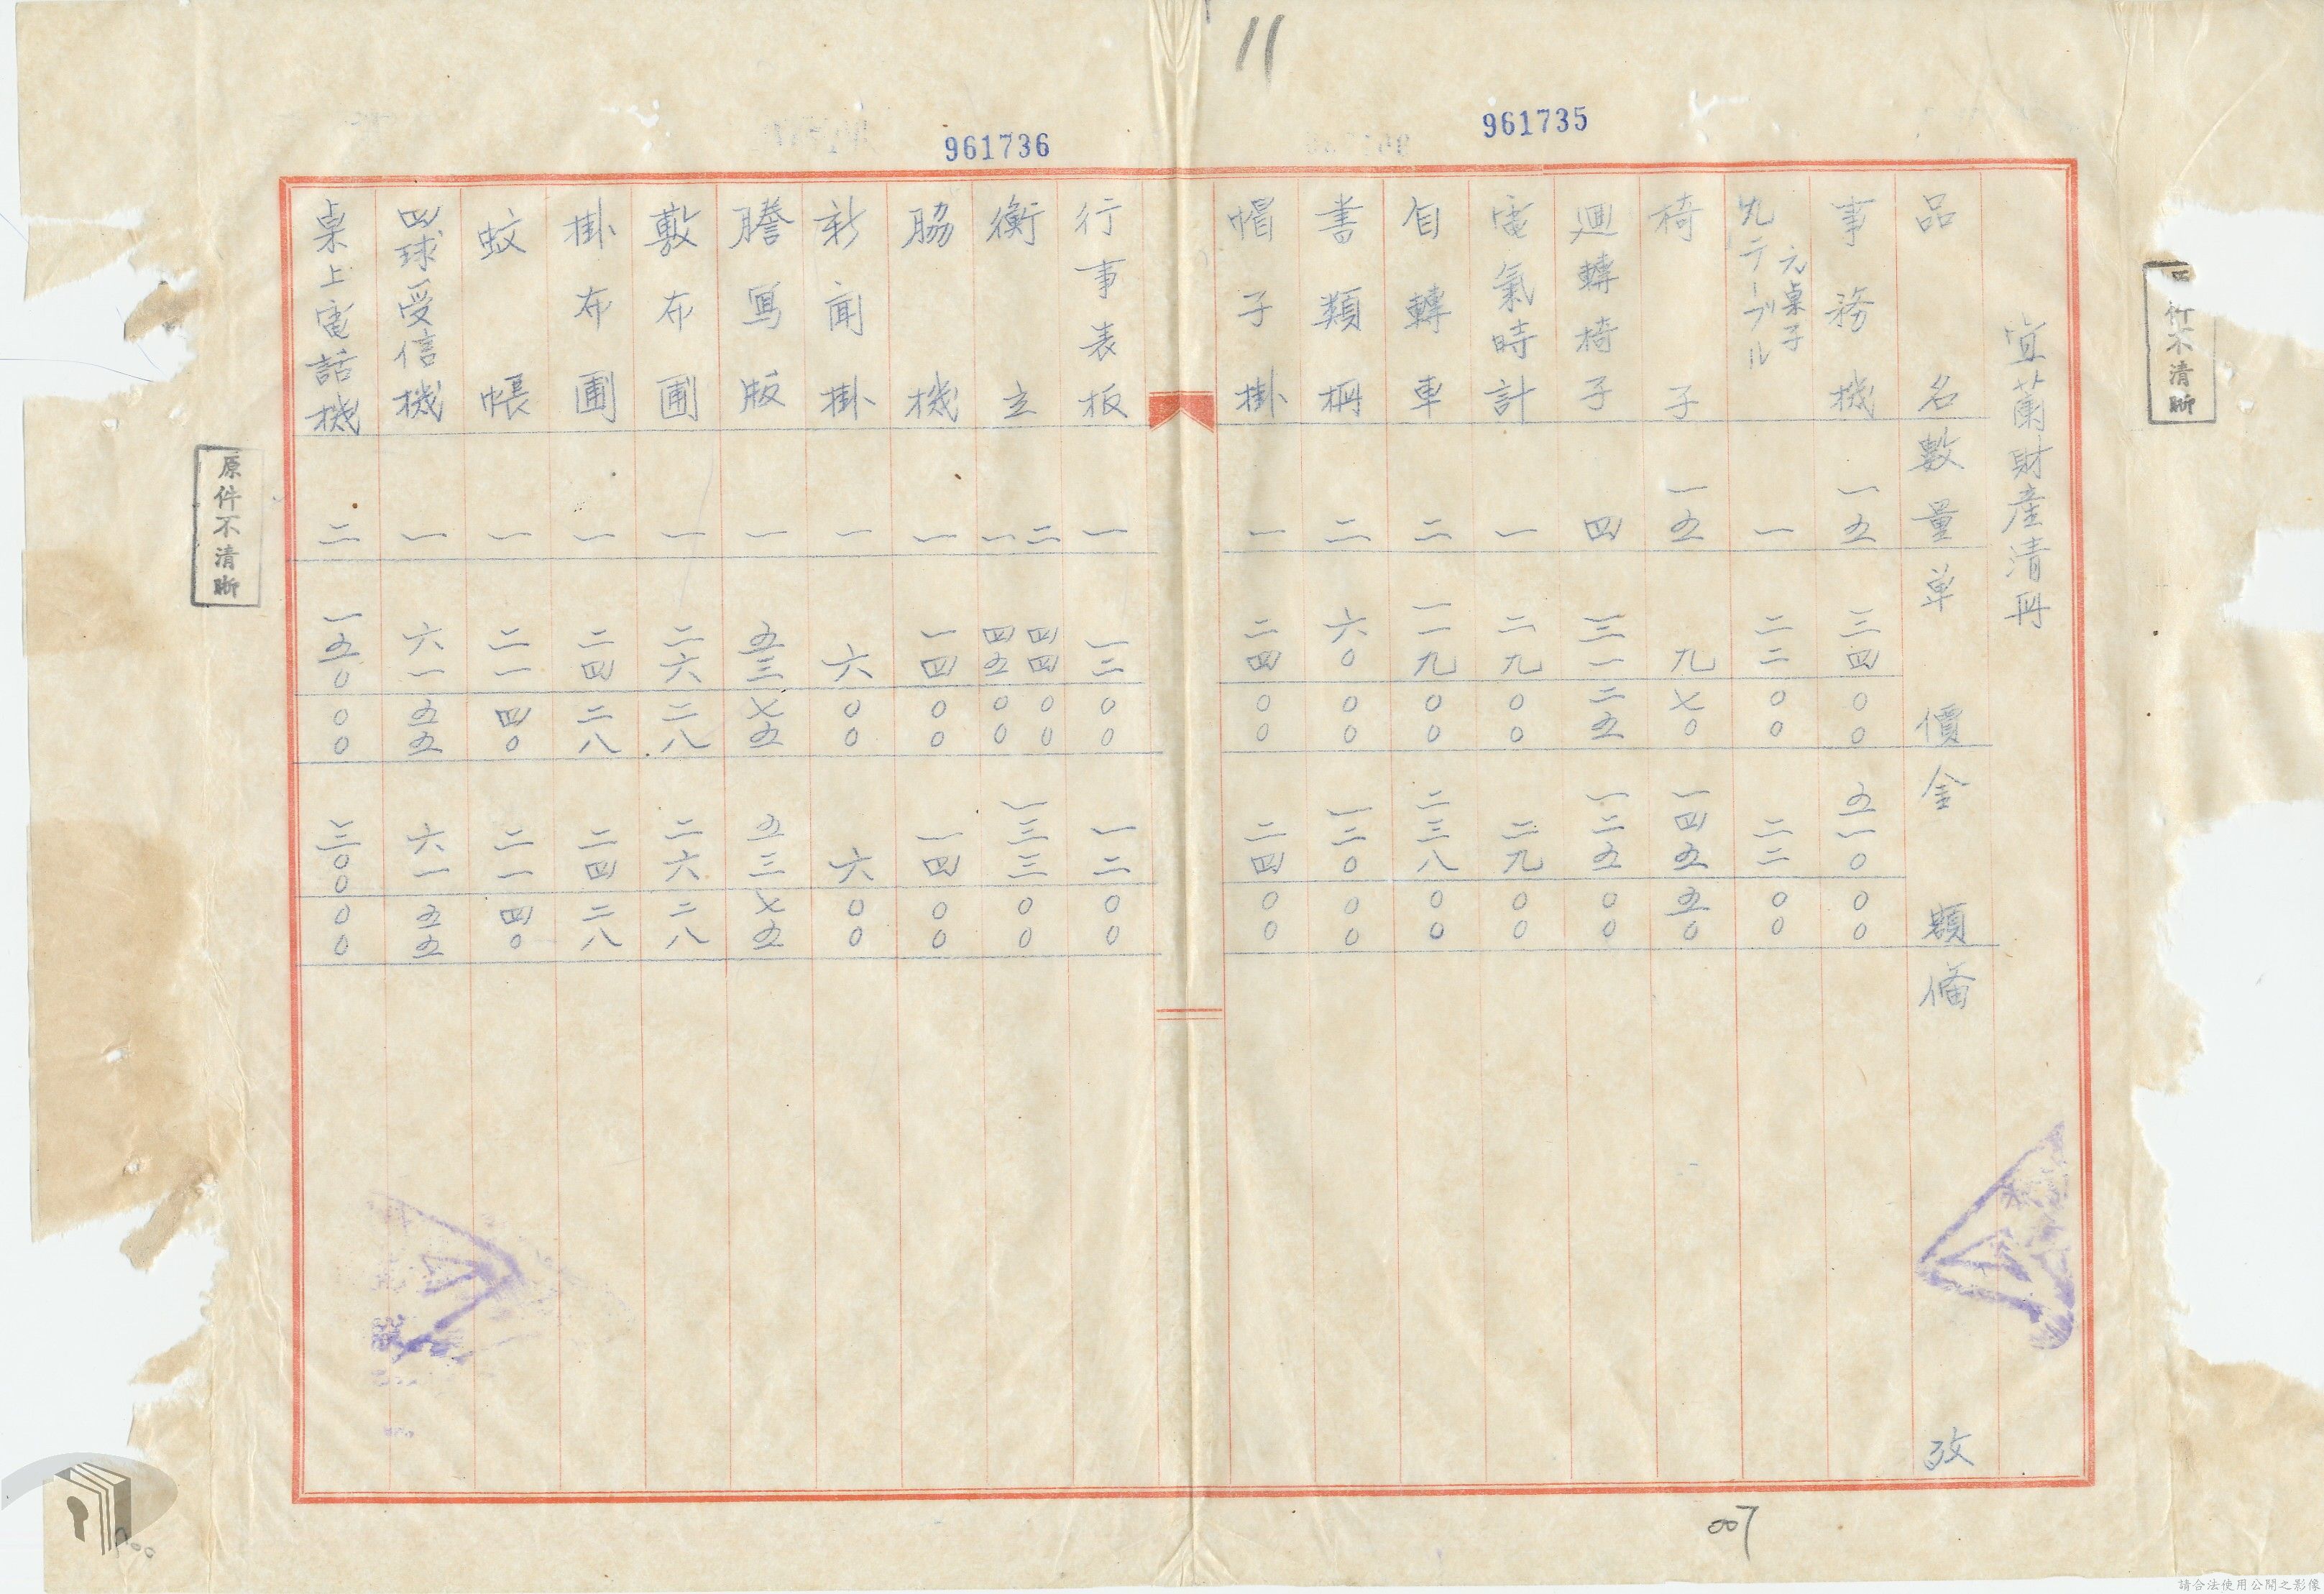 11
961735
961736
宜蘭財產清冊
品名 數量 单價 金額 備攷
事務機 一五 三四 〇〇 五一〇 〇〇
元桌子
丸テーブル 一 二二 〇〇 二二 〇〇
椅子 一五 九 七〇 一四五 五〇
廻轉椅子 四 三一 二五 一二五 〇〇
電氣時計 一 二九 〇〇 二九 〇〇
自轉車 二 一一九 〇〇 二三八 〇〇
書類棚 二 六〇 〇〇 一二〇 〇〇
帽子掛 一 二四 〇〇 二四 〇〇
行事表板 一 一二 〇〇 一二 〇〇
衡立 二 四四 〇〇 一三三 〇〇
一 四五 〇〇
脇機 一 一四 〇〇 一四 〇〇
新聞掛 一 六 〇〇 六 〇〇
謄写版 一 五三 七五 五三 七五
敷布團 一 二六 二八 二六 二八
掛布團 一 二四 二八 二四 二八
蚊帳 一 二一 四〇 二一 四〇
四球受信機 一 六一 五五 六一 五五
桌上電話機 二 一五〇 〇〇 三〇〇 〇〇
原件不清晰
件不清晰
007
請合法使用公開之影像